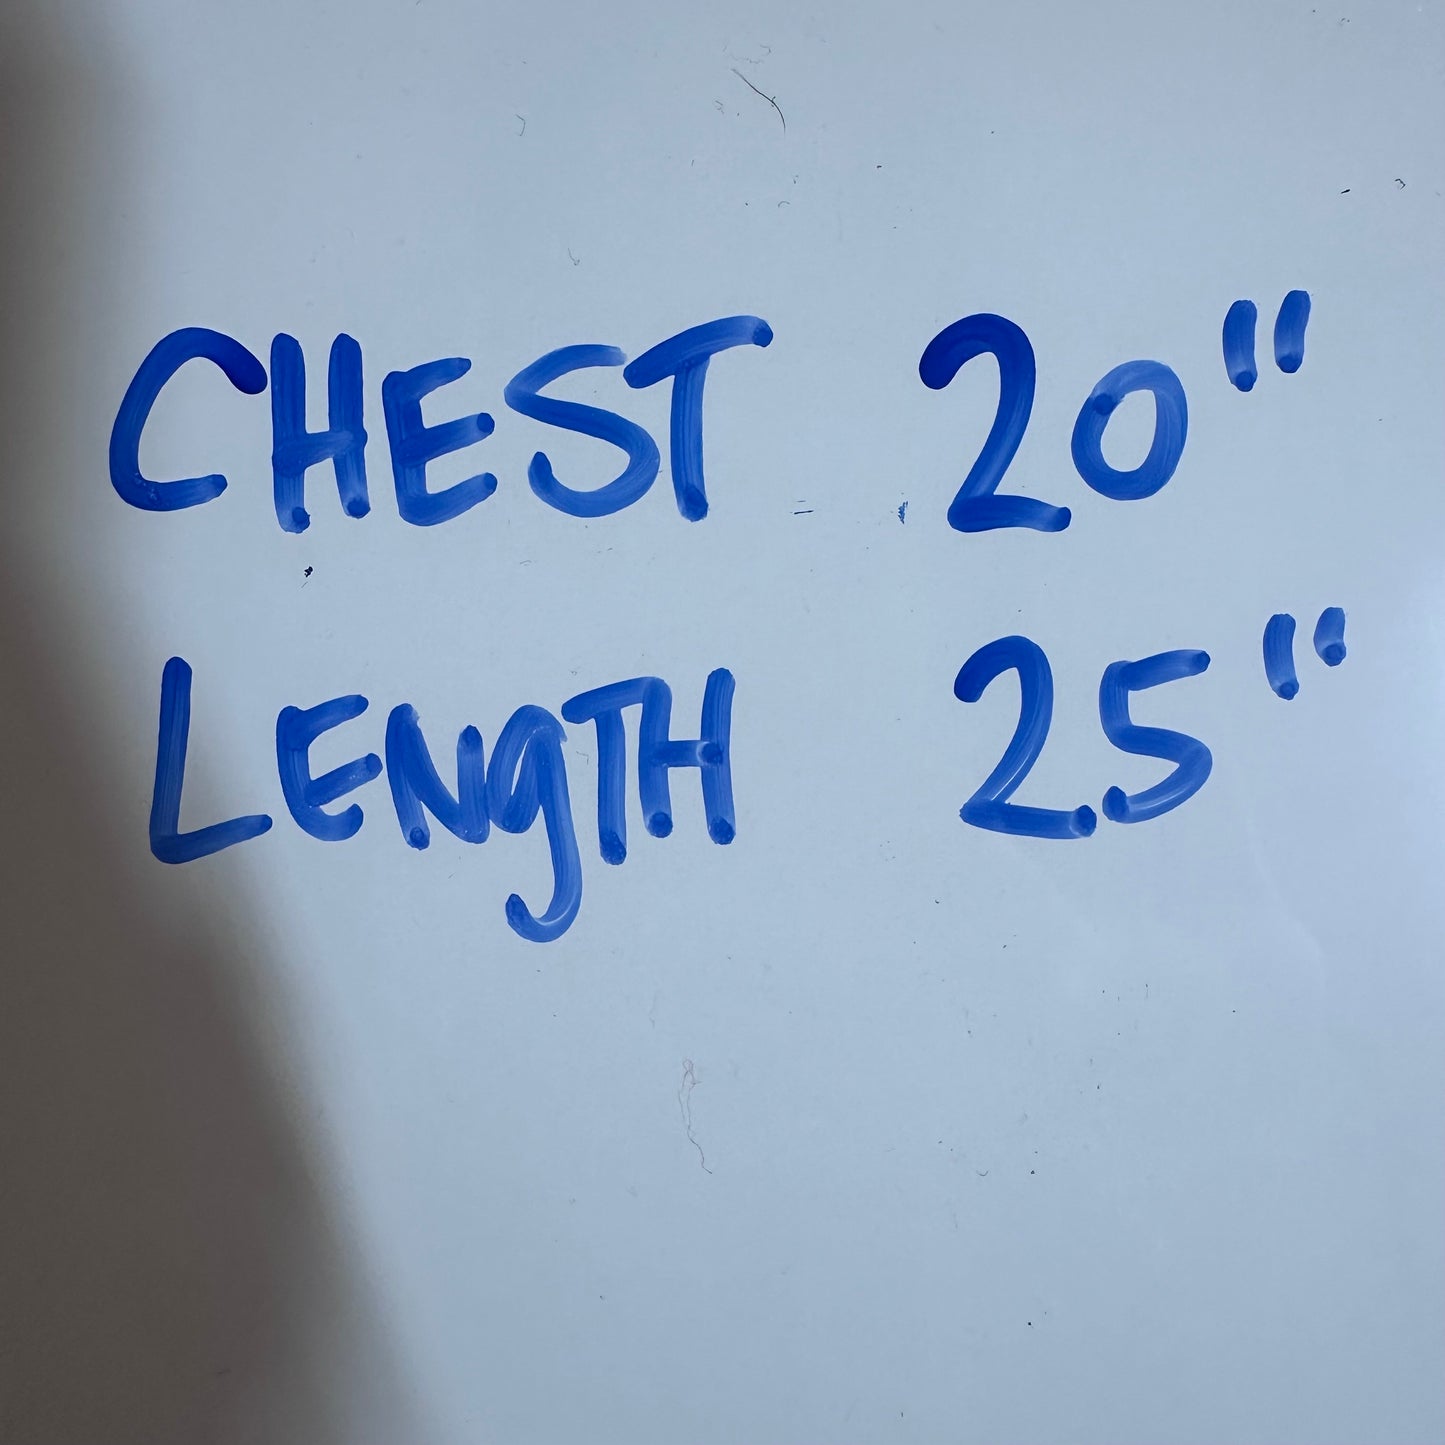 CHEST 20"
LENgTH 25"